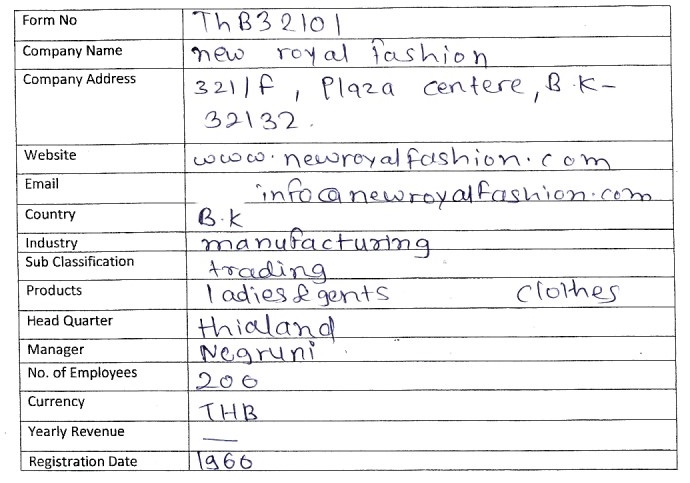 Form No ThB32101
Company Name new royal fashion
Company Address 321/f, Plaza centere, B.K-
32132.
Website www.newroyalfashion.com
Email info@newroyalfashion.com
Country B.K
Industry manufacturing
Sub Classification trading
Products ladies & gents clothes
Head Quarter thialand
Manager Negruni
No. of Employees 200
Currency THB
Yearly Revenue —
Registration Date 1966